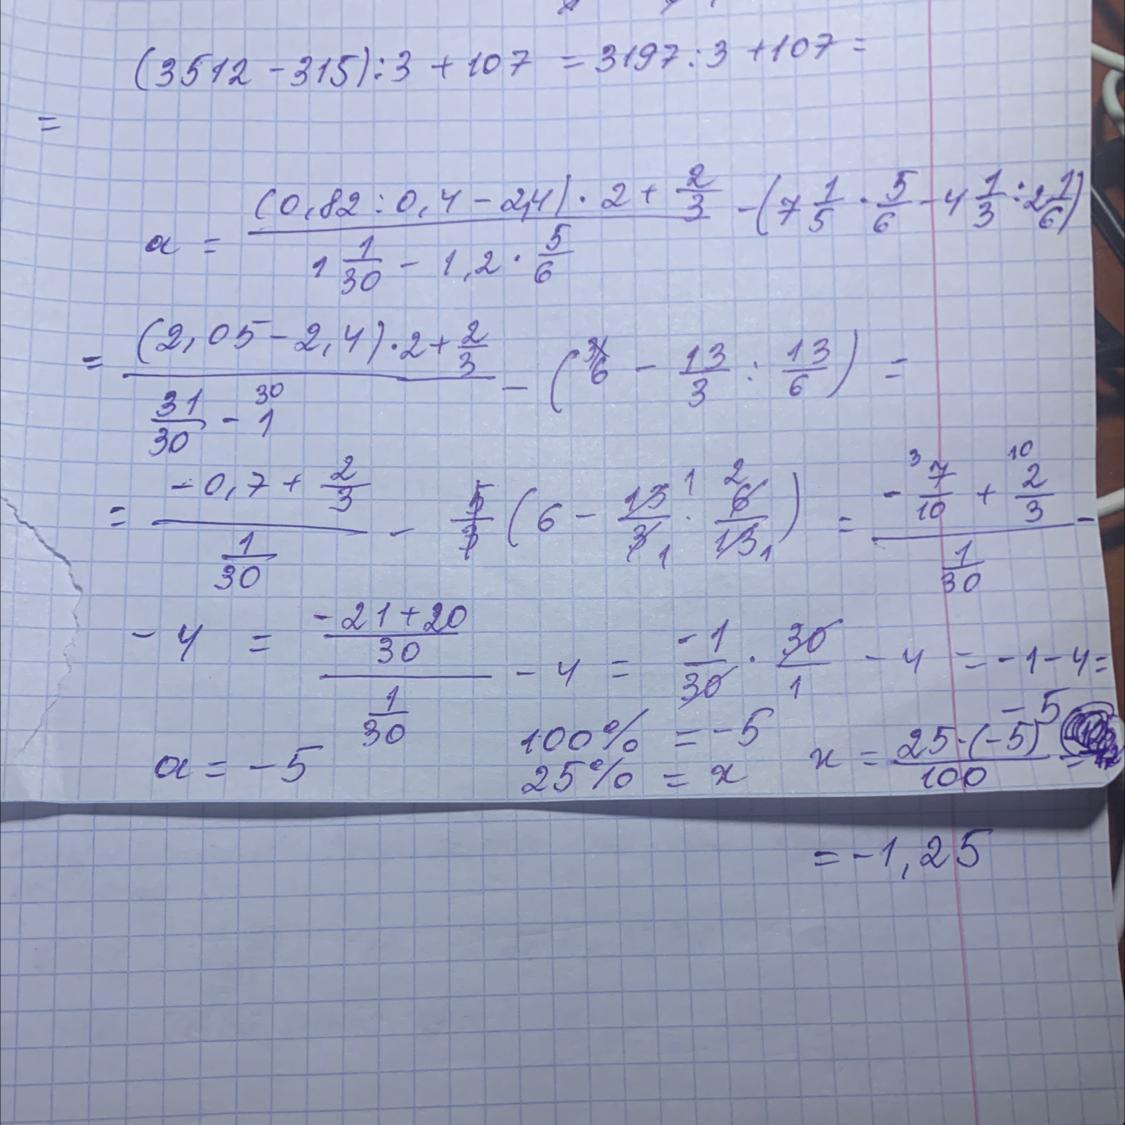 (3512 - 315) : 3 + 107 = 3197 : 3 + 107 =
=
a = ((0,82 : 0,4 - 2,4) · 2 + 2/3)/(1 1/30 - 1,2 · 5/6) - (7 1/5 · 5/6 - 4 1/3 : 2 1/6)
= ((2,05 - 2,4) · 2 + 2/3)/(31/30 - 1) - (6 - 13/3 : 13/6) =
= (-0,7 + 2/3)/(1/30) - (6 - 13/3 · 6/13) = (-7/10 + 2/3)/(1/30) -
- 4 = ((-21 + 20)/30)/(1/30) - 4 = -1/30 · 30/1 - 4 = -1 - 4 =
-5
a = -5 100% = -5 x = (25 · (-5))/100 =
25% = x
= -1,25